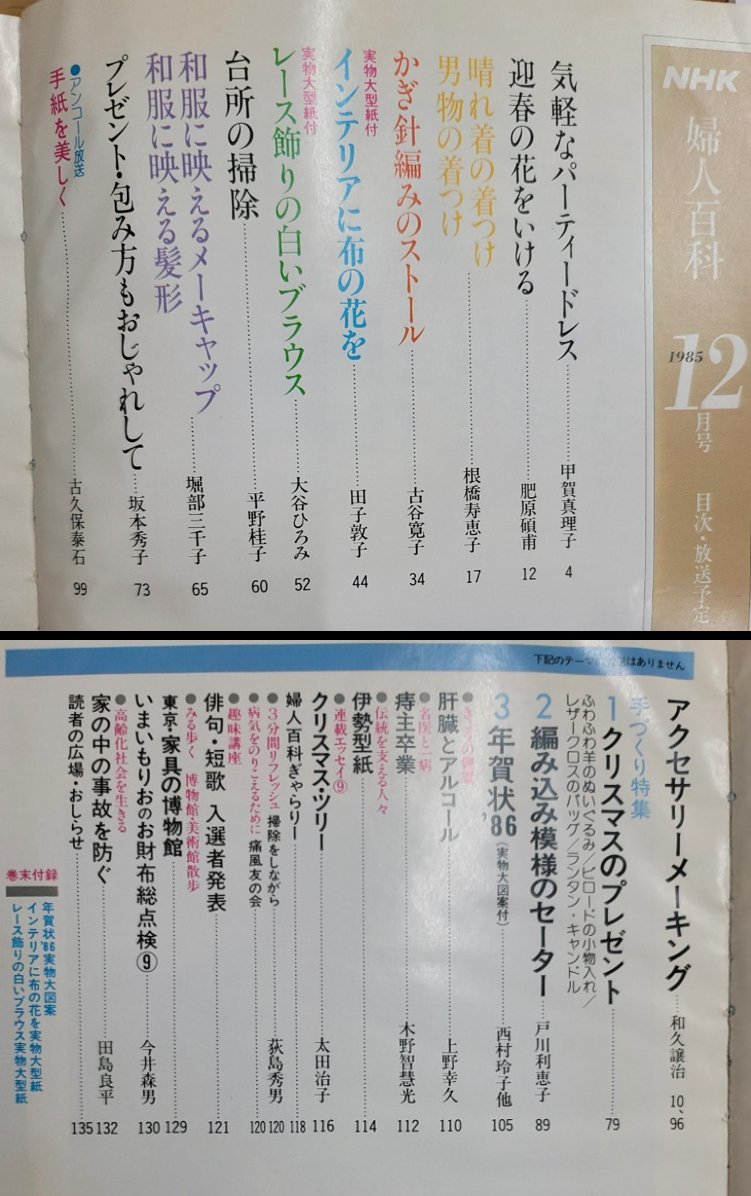 NHK
婦人百科
1985
12月号
目次・放送予定
気軽なパーティードレス 甲賀真理子 4
迎春の花をいける 肥原碩甫 12
晴れ着の着つけ
男物の着つけ 根橋寿恵子 17
かぎ針編みのストール 古谷寛子 34
実物大型紙付
インテリアに布の花を 田子敦子 44
実物大型紙付
レース飾りの白いブラウス 大谷ひろみ 52
台所の掃除 平野桂子 60
和服に映えるメーキャップ
和服に映える髪形 堀部三千子 65
プレゼント・包み方もおじゃれして 坂本秀子 73
●アンコール放送
手紙を美しく 古久保泰石 99
下記のテーマの はありません
アクセサリーメーキング 和久譲治 10、96
手づくり特集
1 クリスマスのプレゼント 79
ふわふわ羊のぬいぐるみ/ビロードの小物入れ/
レザークロスのバッグ/ランタン・キャンドル
2 編み込み模様のセーター 戸川利恵子 89
3 年賀状'86(実物大図案付) 西村玲子他 105
肝臓とアルコール 上野幸久 110
●名医と一病
痔主卒業 木野智慧光 112
●伝統を支える人々
伊勢型紙 114
●連載エッセイ⑨
クリスマス・ツリー 太田治子 116
婦人百科ぎゃらりー 118
●3分間リフレッシュ 掃除をしながら 荻島秀男 120
●病気をのりこえるために 痛風友の会 120
●趣味講座
俳句・短歌 入選者発表 121
●みる歩く 博物館・美術館散歩
東京・家具の博物館 129
いまいもりおのお財布総点検⑨ 今井森男 130
●高齢化社会を生きる
家の中の事故を防ぐ 田島良平 132
読者の広場・おしらせ 135
巻末付録
年賀状'86実物大図案
インテリアに布の花を実物大型紙
レース飾りの白いブラウス実物大型紙